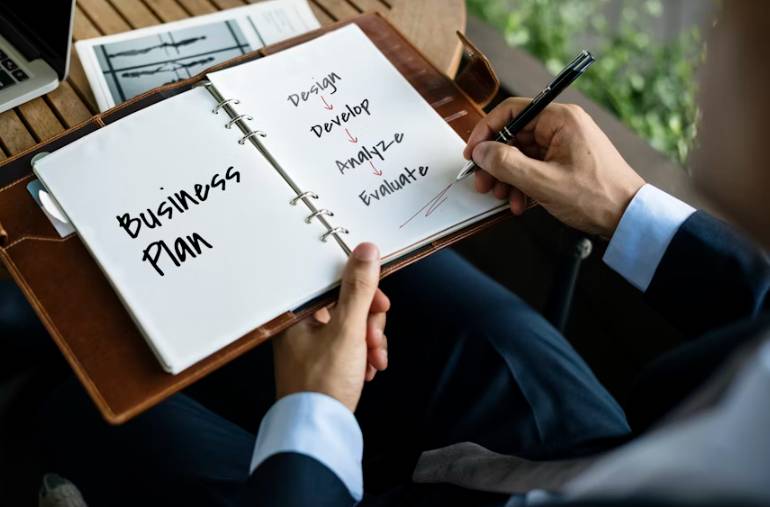 Business
Plan
Design
Develop
Analyze
Evaluate